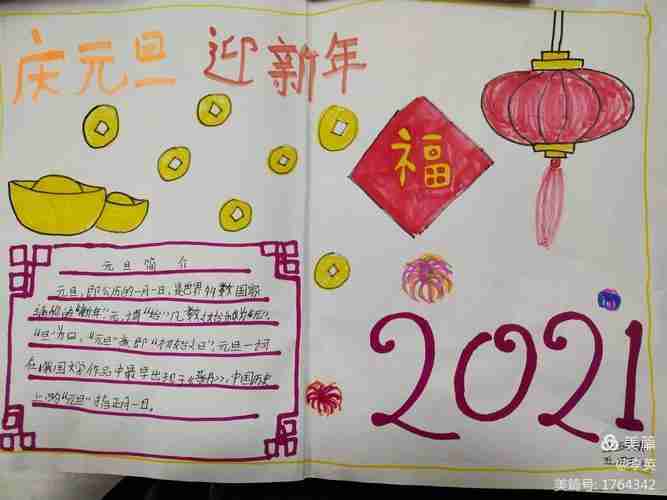 庆元旦 迎新年
福
元旦简介
元旦,即公历的一月一日,是世界多数国家
通称的"新年"。元,谓"始",凡数之始称为"元";
"旦"为日;"元旦"意即"初始之日"。元旦一词
在我国文学作品中最早出现于《晋书》,中国历史
上的"元旦"指正月一日。
2021
美篇
@李英
美篇号: 1764342